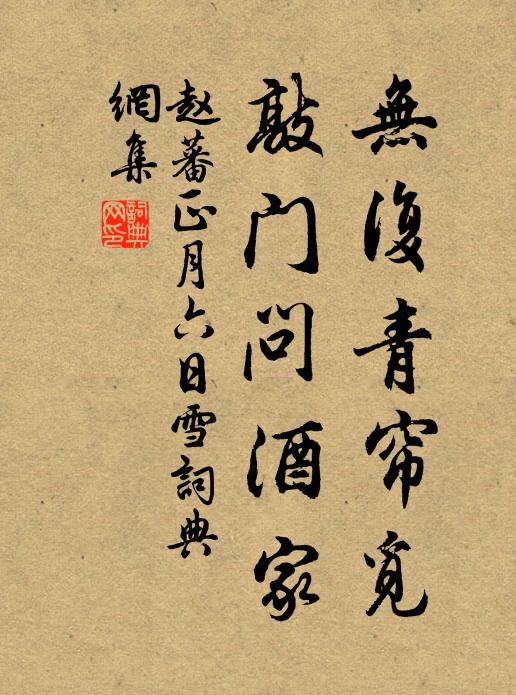 無復青帘覓
敲門問酒家
赵蕃正月六日雪詞典
網集
詞典
网印